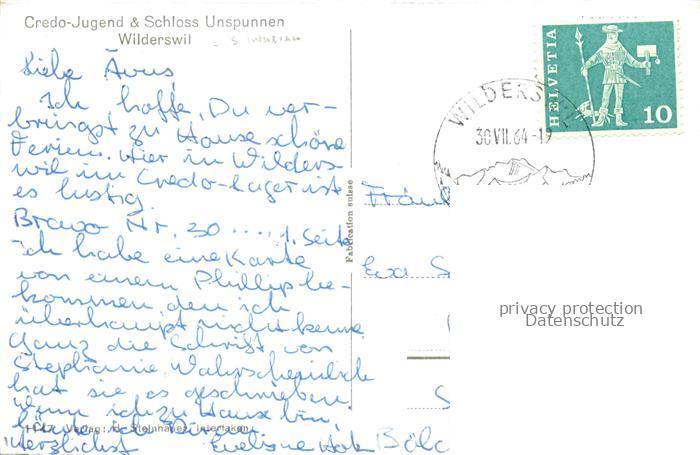 Credo-Jugend & Schloss Unspunnen
Wilderswil
Liebe
Ich hoffe, Du ver-
bringst zu Hause schöne
Ferien. Hier in Wilders
wil im Credo-Lager ist
es lustig.
Bravo Nr. 30 .... 1. Seite
ich habe eine Karte
von einem Phillip be-
kommen, den ich
überhaupt nicht kenne
Ganz die Schrift von
Stephanie. Wahrscheinlich
hat sie es geschrieben
Wenn ich zu Hause bin,
Verlag: Steinhauer, Interlaken
Herzlichst Evelyne
Fabrication suisse
WILDERSWIL
30.VII.64-19
HELVETIA
10
Fräul
Eva S
S
privacy protection
Datenschutz